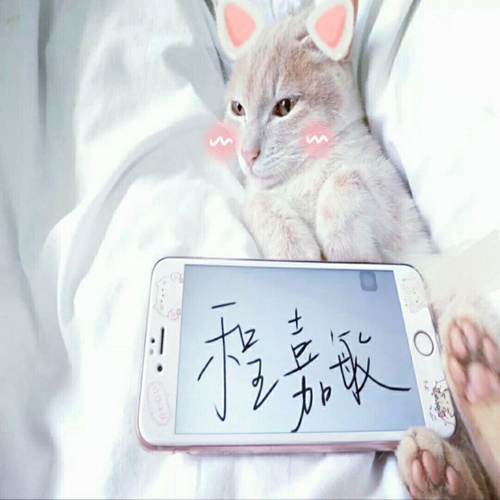 程嘉敏